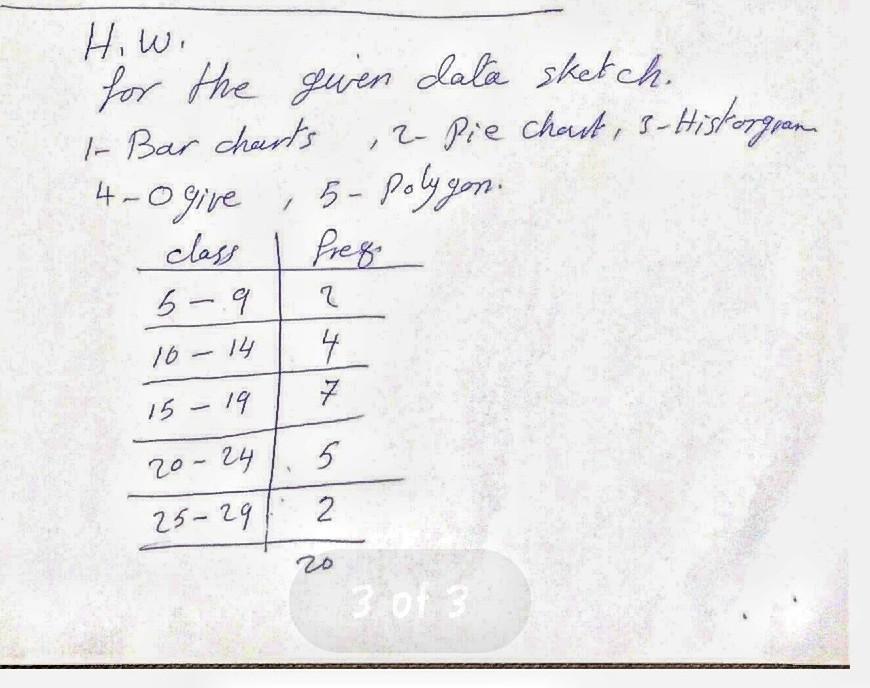 H.W.
for the given data sketch.
1- Bar charts , 2- Pie chart, 3- Historgram
4- Ogive , 5- Polygon.
class freq
5 - 9 2
10 - 14 4
15 - 19 7
20 - 24 5
25 - 29 2
20
3 of 3